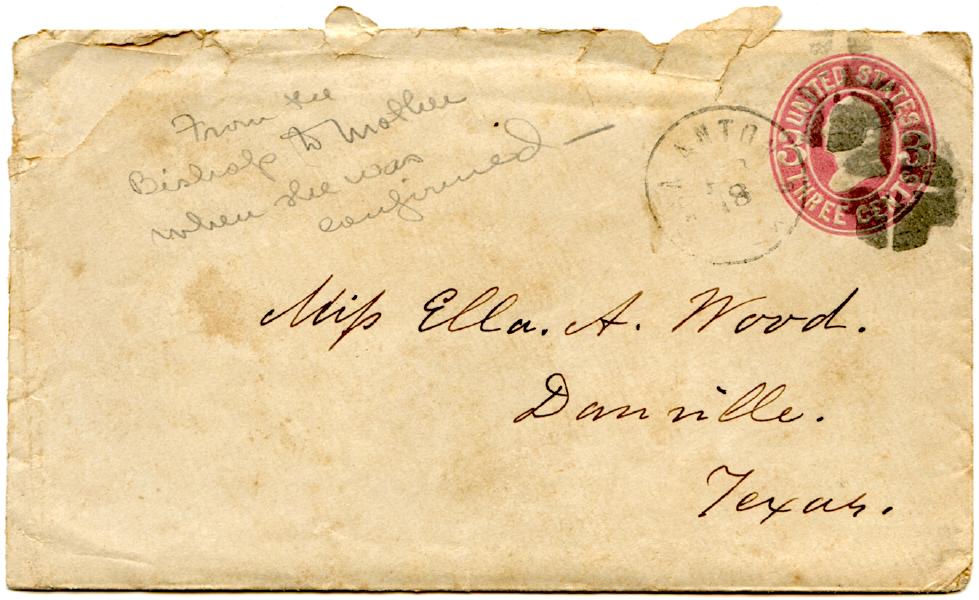 From the
Bishop to Mother
when she was
confirmed —
ANTO
18
UNITED STATES
3 3
THREE CENTS
Miss Ella. A. Wood.
Danville.
Texas.